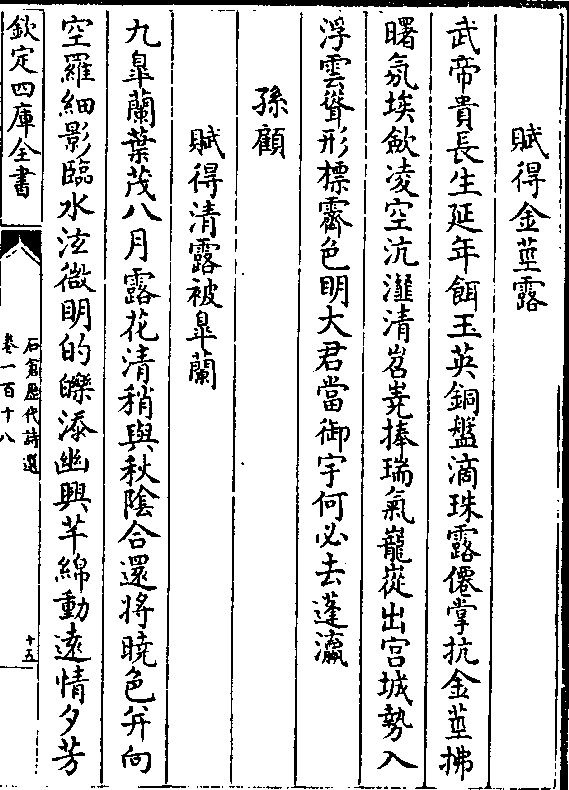 賦得金莖露
武帝貴長生延年餌玉英銅盤滴珠露僊掌抗金莖拂
曙氛埃歛凌空沆瀣清岧嶤捧瑞氣巃嵸出宫城勢入
浮雲聳形標霽色明大君當御宇何必去蓬瀛
孫顧
賦得清露被臯蘭
九臯蘭葉茂八月露花清稍與秋陰合還將曉色并向
空羅細影臨水泫微明的皪添幽興芊綿動遠情夕芳
欽定四庫全書
石倉歷代詩選
卷一百十八
十五